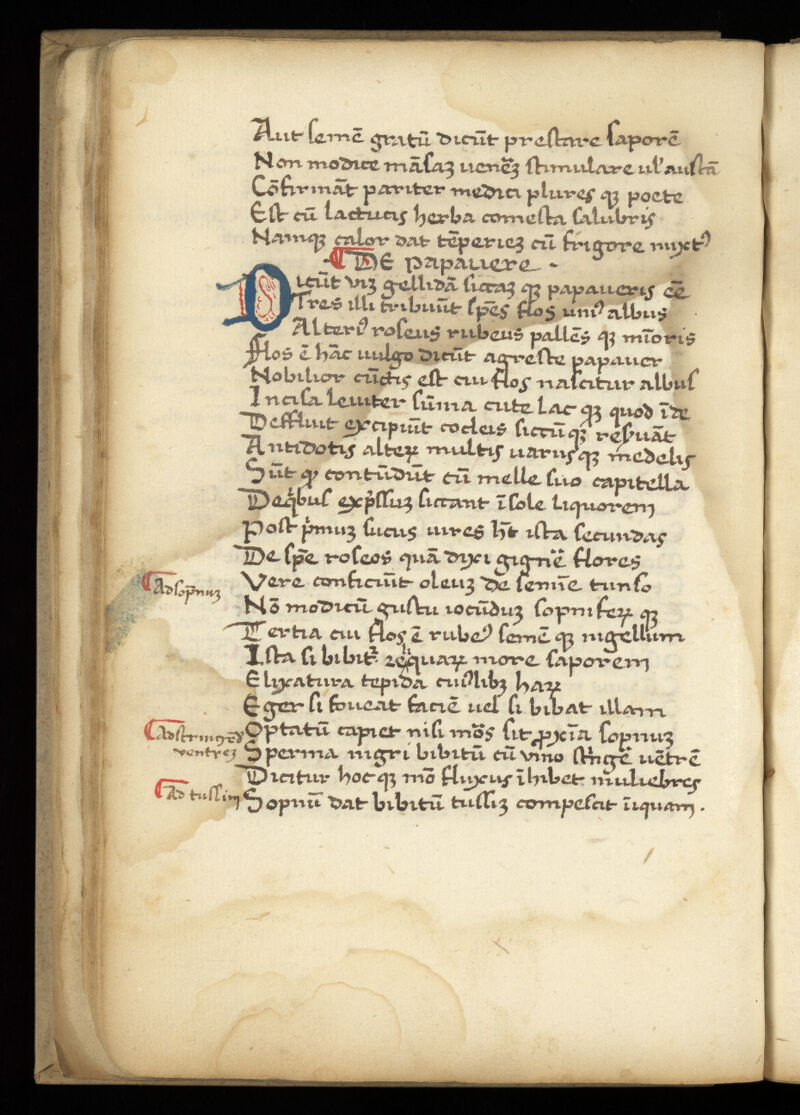 Aut semē gratū dicūt prestare saporē
Non modice māsaꝫ ueneꝫ stimulare ul' austā
Cōfirmāt pariter medici plures qꝫ poete
Est cū lactucis herba comesta salubris
Namqꝫ calor dat tēperieꝫ cū frigore mixtꝰ
De papauere
Dicūt viꝫ gellidā siccaꝫ qꝫ papaueris eē
Tres illi tribuūt spēs flos uniꝰ albus
Alteriꝰ roseus rubeus pallēs qꝫ mīoris
Flos ē hāc uulgo dicūt agreste papauer
Nobilior cūctis est cui flos nascitur albus
Incisa leuiter sūma cute lac qꝫ quod īde
Deffluit excipiūt cocleis siccū qꝫ resuāt
Antidotis alteꝝ multis uarus qꝫ medelis
Sūt qͥ contūdūt cū melle suo capitella
Deqͥbus exp̄ssuꝫ siccant ī sole liquorem
Post pͥmuꝫ sucus uires h̄t ista secundas
De spē roseos quā dixi gignē flores
Vere conficiūt oleuꝫ de semīe tunso
Ad sop̄nuꝫ
Nō modicū gustu iocūduꝫ sopnifeꝝ qꝫ
Tertia cui flos ē rubeꝰ semē qꝫ nigellum
Ista si bibitͬ reqͥquaꝝ more saporem
Elixatura tepida cuiꝰlibꝫ haꝝ
Eger si foueat faciē uel si bibat illam
Optatū capiet nisi mōs sit ꝓxīa sopnuꝫ
Ad stringēdꝫ
ventreꝫ
Sperma nigri bibitū cū vino strīgē uētrē
Dicitur hoc qꝫ mō fluxus īhibet muliebres
Ad tussim
Sopnū dat bibitū tussiꝫ compescit iniquam .